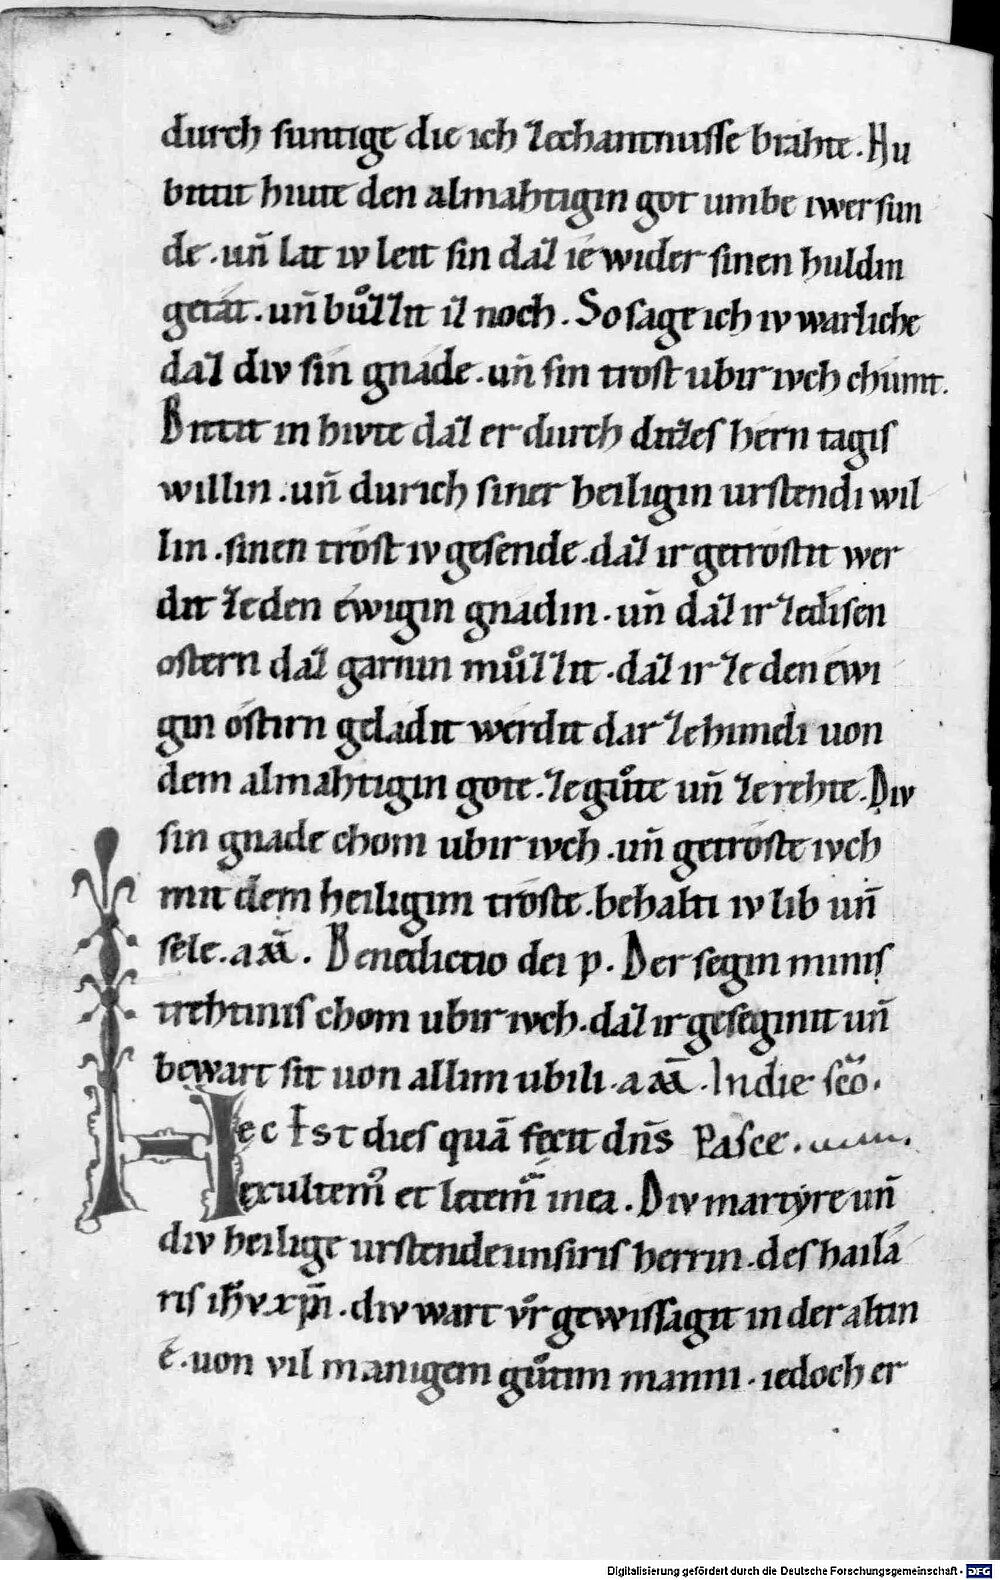 durch suntige die ich zechantnusse brahte. Nu
bittit hiute den almahtigin got umbe iwer sun
de. uñ lat iv leit sin daz ie wider sinen huldin
getát. uñ bůzzit iz noch. So sage ich iv warliche
daz div sin gnade. uñ sin trost ubir ivch chumt.
Bittit in hivte daz er durch ditzes hern tagis
willin. uñ durich siner heiligin urstendi wil
lin. sinen trost iv gesende. daz ir getrostit wer
dit ze den éwigin gnadin. uñ daz ir ze disen
ostern daz garnin můzzit. daz ir ze den éwi
gin ostirn geladit werdit dar ze himili von
dem almahtigin gote. ze gůte uñ ze rehte. Div
sin gnade chom ubir ivch. uñ getroste ivch
mit dem heiligim troste. behalti iv lib uñ
sele. am̅. Benedictio dei p. Der segin minis
trehtinis chom ubir ivch. daz ir geseginit uñ
bewart sit von allim ubili. am̅. In die sc̅o.
Hec Est dies quā fecit dñs Pasce.
exultem᷒ et letem᷒ in ea. Div martyre uñ
div heilige urstende unsiris herrin. des hailā
ris ihv xp̅i. div wart vůr gewissagit in der altin
é. von vil manigem gůtim manni. iedoch er
Digitalisierung gefördert durch die Deutsche Forschungsgemeinschaft - DFG